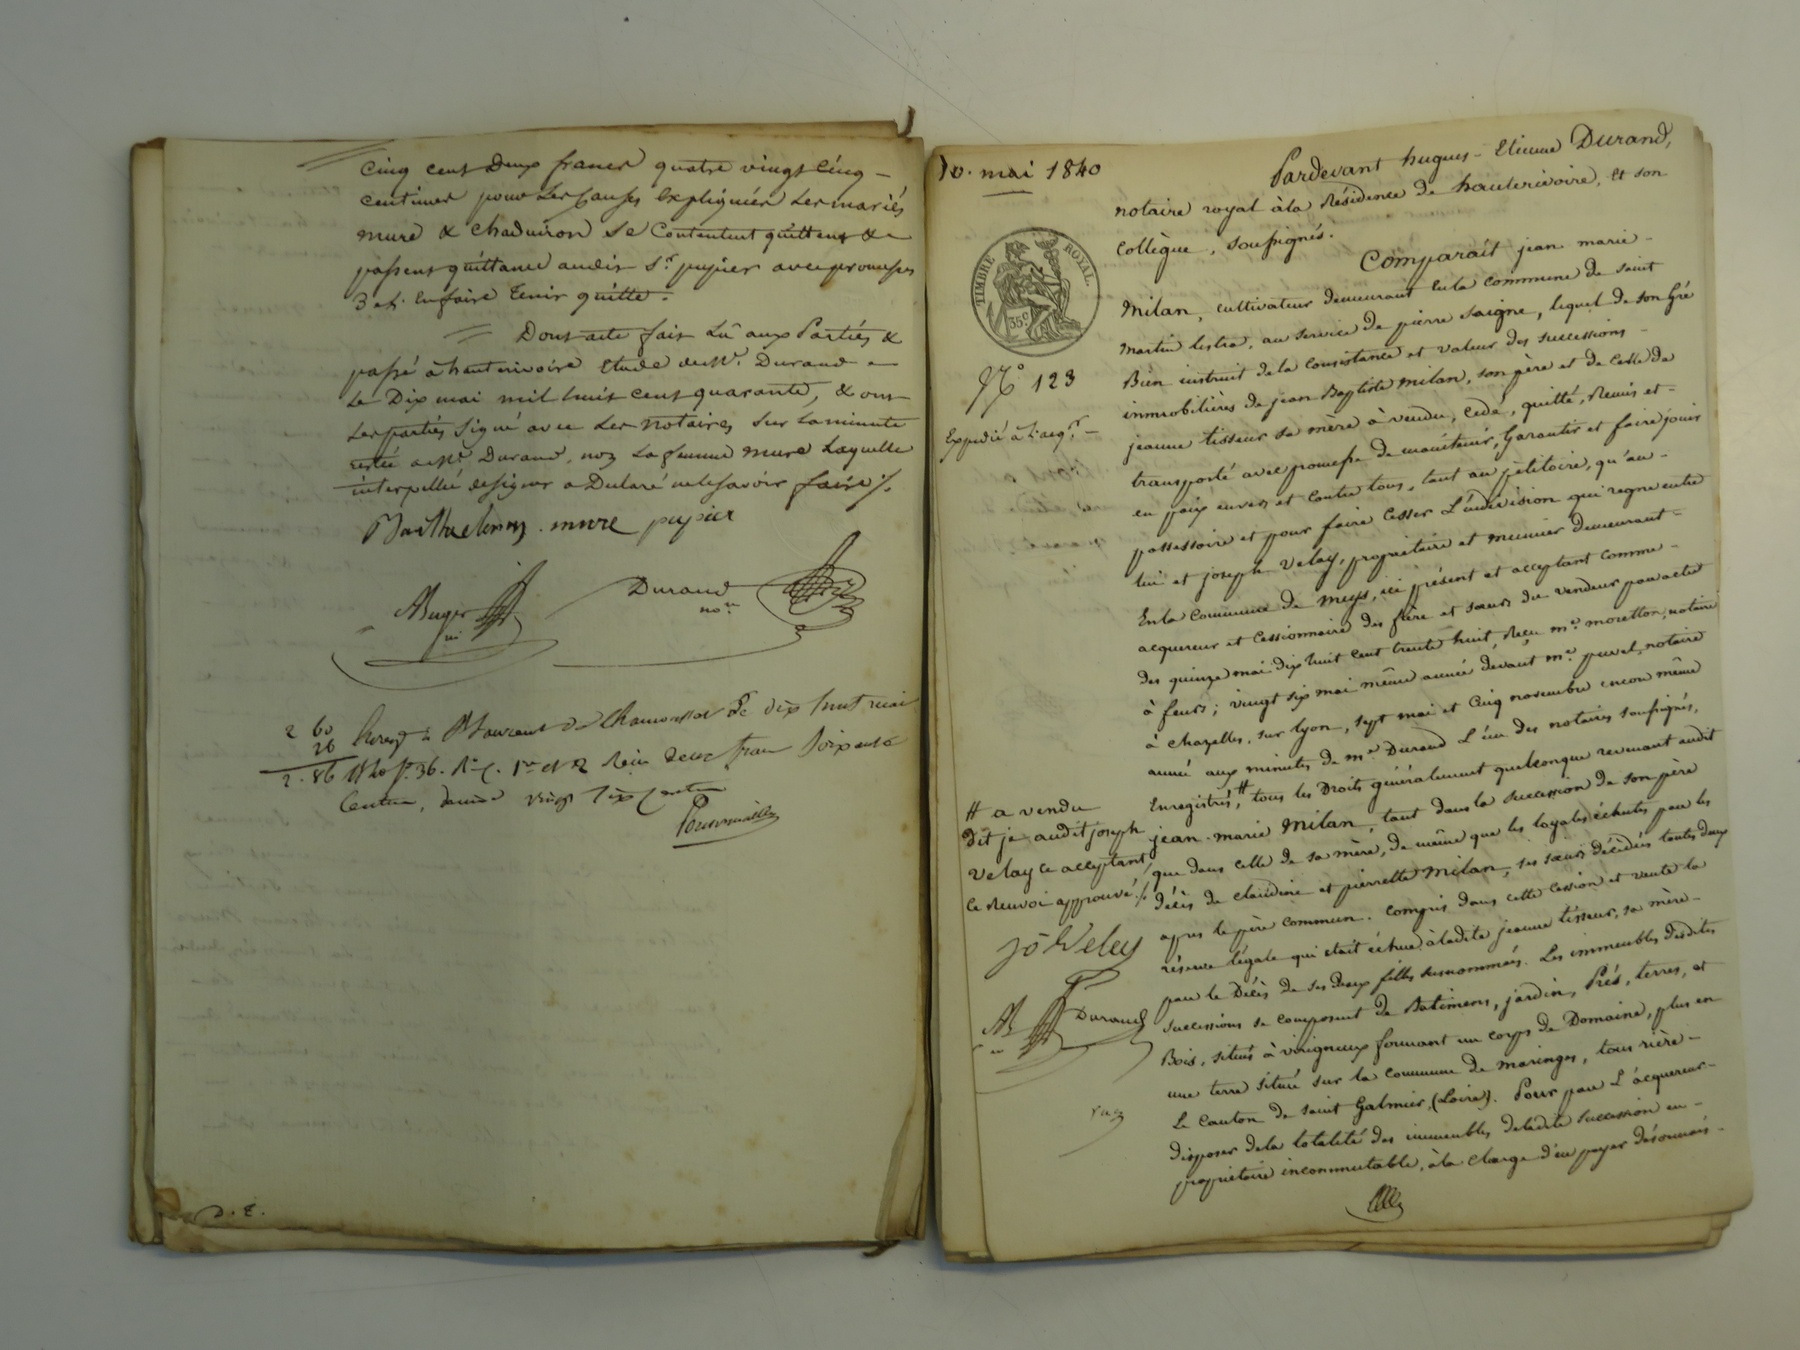 cinq cent Deux francs quatre vingt cinq
centimes pour les causes Expliquées Les mariés
mure & chaduiron se Contentent quittent &
passent quittance audit Sr. pupier avec promesses
3 et. Enfaire tenir quitte.
Dont acte fait Lû aux Parties &
passé à hauterivoire Etude de Me. Durand
Le Dix mai mil huit cent quarante, & ont
Les parties signé avec Les notaires sur la minute
restée à Me. Durand, non La femme mure Laquelle
interpellée de signer a Déclaré ne le savoir faire /.
Barthelemy . mure pupier
Durand
nore
2 60
26
2. 86
Enreg. à St Laurent de Chamousset le dix huit mai
1840 fo. 36. Ro. c. 1re et 2 Reçu deux francs soixante
Centimes, decime vingt six centimes
D. E.
10. mai 1840
TIMBRE ROYAL
35 c
No 123
Expédié à l'acqr.
Pardevant hugues-Etienne Durand,
notaire royal à la Résidence de hauterivoire, et son
Collègue, soussignés.
Comparaît jean marie
Milan, cultivateur demeurant En la commune de saint
martin lestra, au service de pierre saigne, lequel de son Gré
Bien instruit de la consistance et valeur des successions
immobilières de jean Baptiste milan, son père et de Celle de
jeanne tisseur sa mère à vendu, cédé, quitté, Remis et
transporté avec promesse de maintenir, Garantir et faire jouir
en paix envers et contre tous, tant au pétitoire, qu'au
possessoire et pour faire Cesser L'indivision qui regne entre
lui et joseph Velay, propriétaire et meunier demeurant
En la commune de meys, ici présent et acceptant comme
acquereur et Cessionnaire des frère et sœurs du vendeur par actes
des quinze mai dix huit cent trente huit, Reçu me. moretton, notaire
à feurs; vingt six mai même année devant me. notaire
à chazelles, sur lyon, sept mai et Cinq novembre encore même
année aux minutes de me. Durand L'un des notaires soussignés,
Enregistrés, # tous les Droits généralement quelconque revenant audit
jean-marie Milan, tant dans la succession de son père
que dans celle de sa mère, de même que les loyales échutes par les
décès de claudine et pierrette Milan, ses sœurs décédées toutes deux
après le père commun. Compris dans cette cession et vente la
réserve légale qui était échue à ladite jeanne tisseur, sa mère
par le Décès de ses deux filles susnommées. Les immeubles desdites
successions se composent de Batimens, jardin, Prés, terres, et
Bois, situés à virigneux formant un corps de Domaine, plus en
une terre située sur la commune de maringes, tous rière
Le Canton de saint Galmier, (Loire). Pour par L'acquereur
disposer de la totalité des immeubles de ladite succession en
propriétaire incommutable, à la charge d'en payer désormais
# a vendu
dit je audit joseph
Velay ce acceptant,
Ce Renvoi approuvé./.
jh Velay
Durand